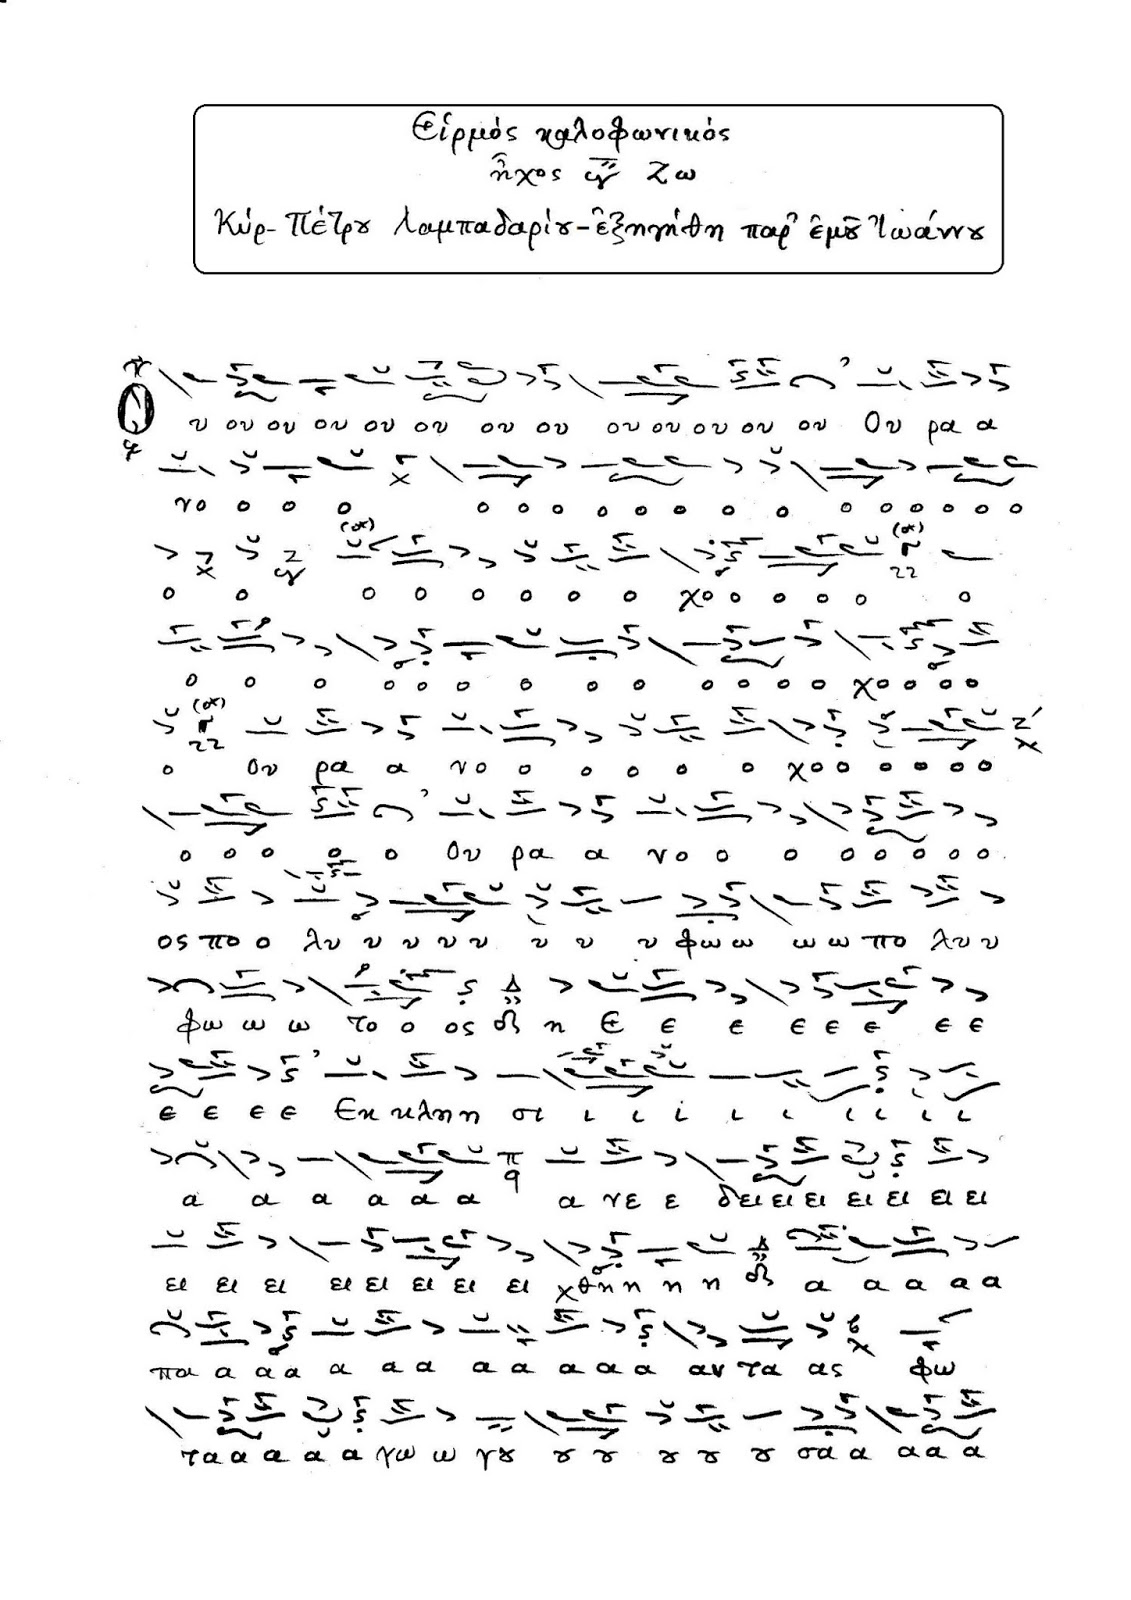 Εἱρμός καλοφωνικός
ἦχος Ζω
Κύρ-Πέτρου λαμπαδαρίου-ἐξηγήθη παρ' ἐμοῦ Ἰωάννου
Ου ου ου ου ου ου ου ου ου ου ου ου ου Ου ρα α
νο ο ο ο ο ο ο ο ο ο ο ο ο ο ο ο ο ο
ο ο ο ο ο ο ο ο χο ο ο ο ο ο
ο ο ο ο ο ο ο ο ο ο ο ο ο χο ο ο ο
ο Ου ρα α νο ο ο ο ο χο ο ο ο ο ο
ο ο ο ο ο Ου ρα α νο ο ο ο ο ο ο ο
ος πο ο λυ υ υ υ υ υ υ υ φω ω ω ω πο λυ υ
φω ω ω το ο ος η Ε ε ε ε ε ε ε ε
ε ε ε ε Εκ κλη η σι ι ι ι ι ι ι ι ι ι
α α α α α α α νε ε δει ει ει ει ει ει ει
ει ει ει ει ει ει ει ει χθη η η η α α α α α
πα α α α α α α α α α α α αν τα ας φω
τα α α α α γω ω γου ου ου ου ου ου σα α α α α